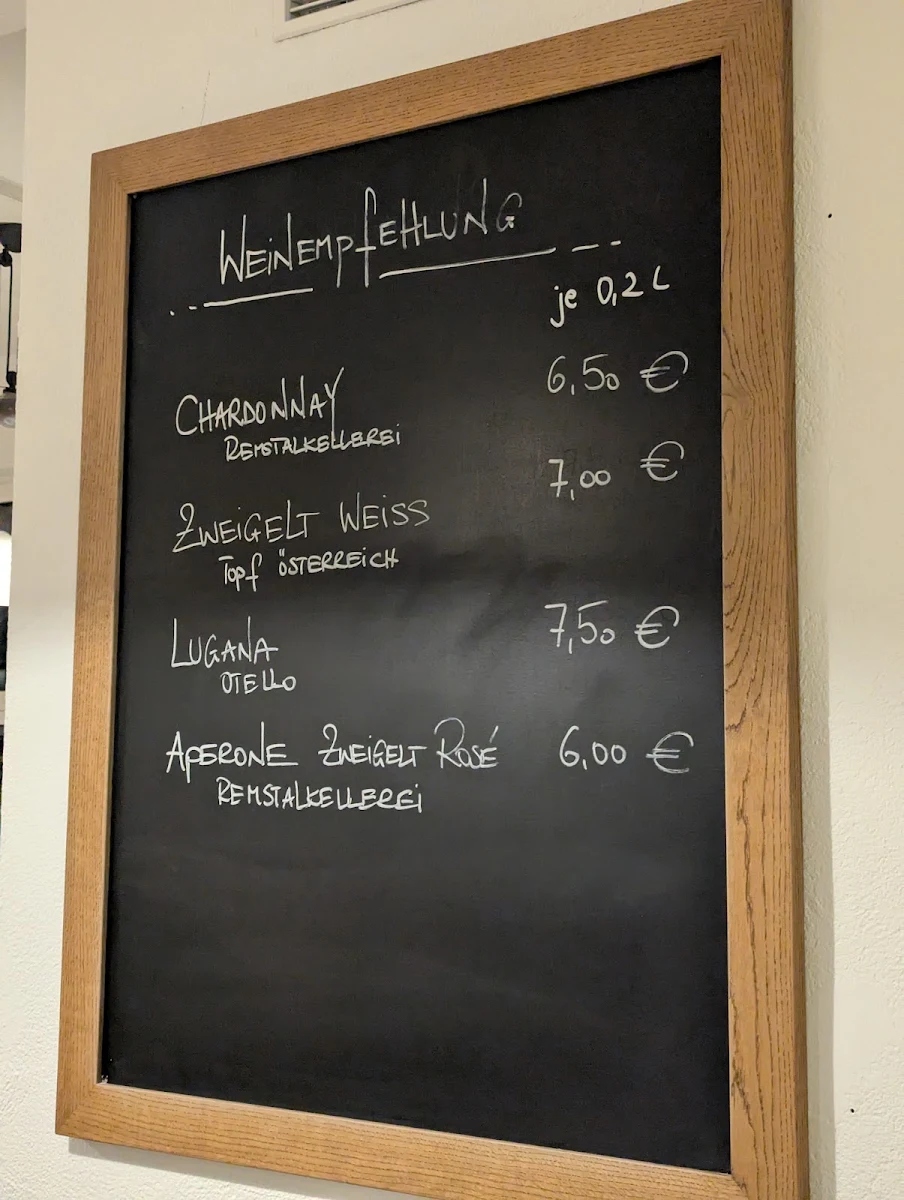 WEINEMPFEHLUNG
je 0,2 L
CHARDONNAY 6,50 €
REMSTALKELLEREI
ZWEIGELT WEISS 7,00 €
Topf ÖSTERREICH
LUGANA 7,50 €
OTELLO
APERONE ZWEIGELT ROSÉ 6,00 €
REMSTALKELLEREI